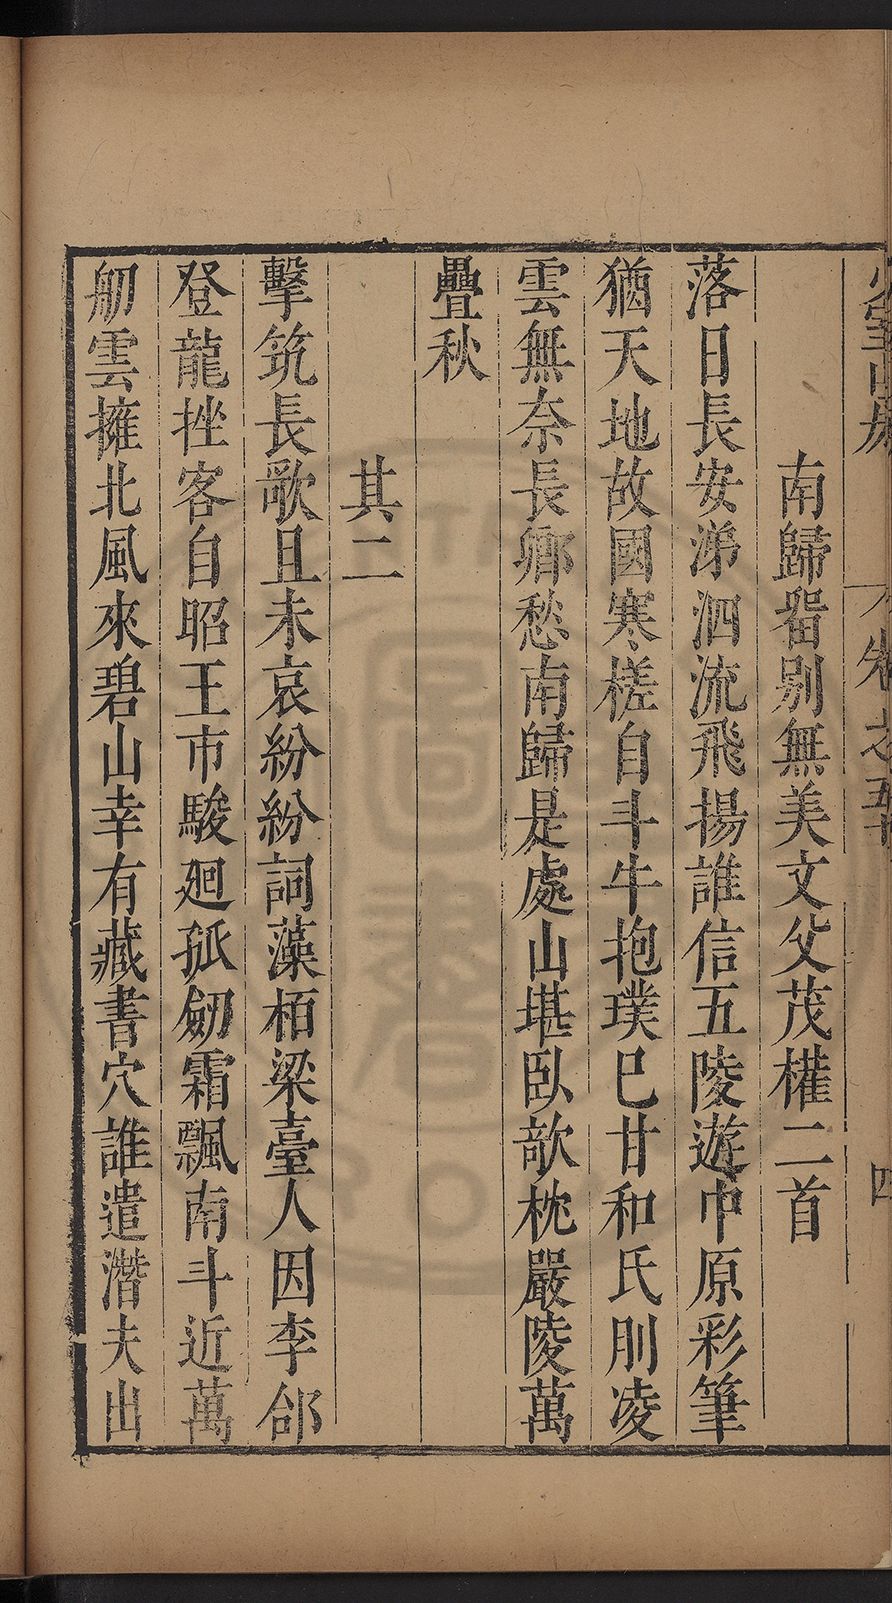 少室山房 卷之五十 四
南歸留別無美文父茂權二首
落日長安涕泗流飛揚誰信五陵遊中原彩筆
猶天地故國寒槎自斗牛抱璞巳甘和氏刖凌
雲無奈長卿愁南歸是處山堪臥欹枕嚴陵萬
疊秋
其二
擊筑長歌且未哀紛紛詞藻栢梁臺人因李郃
登龍挫客自昭王市駿廻孤劒霜飄南斗近萬
舠雲擁北風來碧山幸有藏書穴誰遣潛夫出